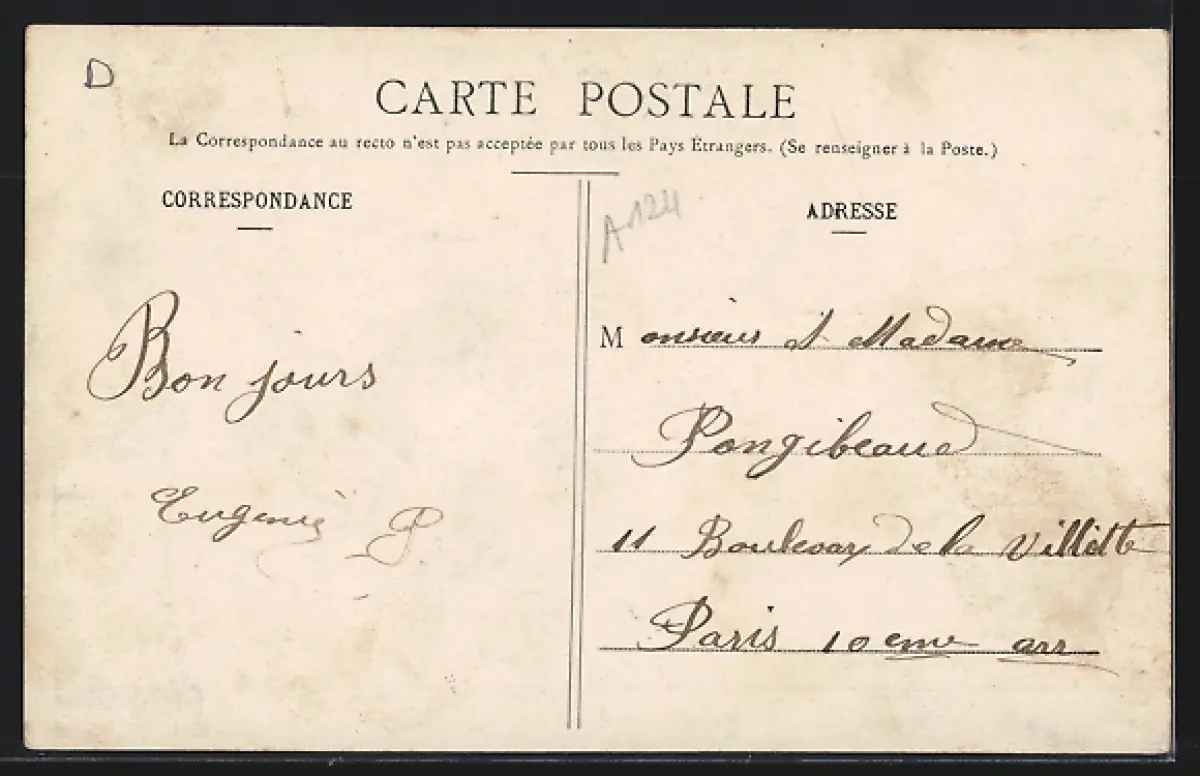 D
CARTE POSTALE
La Correspondance au recto n'est pas acceptée par tous les Pays Étrangers. (Se renseigner à la Poste.)
CORRESPONDANCE
Bon jours
Eugenie P.
A124
ADRESSE
Monsieur et Madame
Pongibeaud
11 Boulevar de la Villette
Paris 10 eme arr